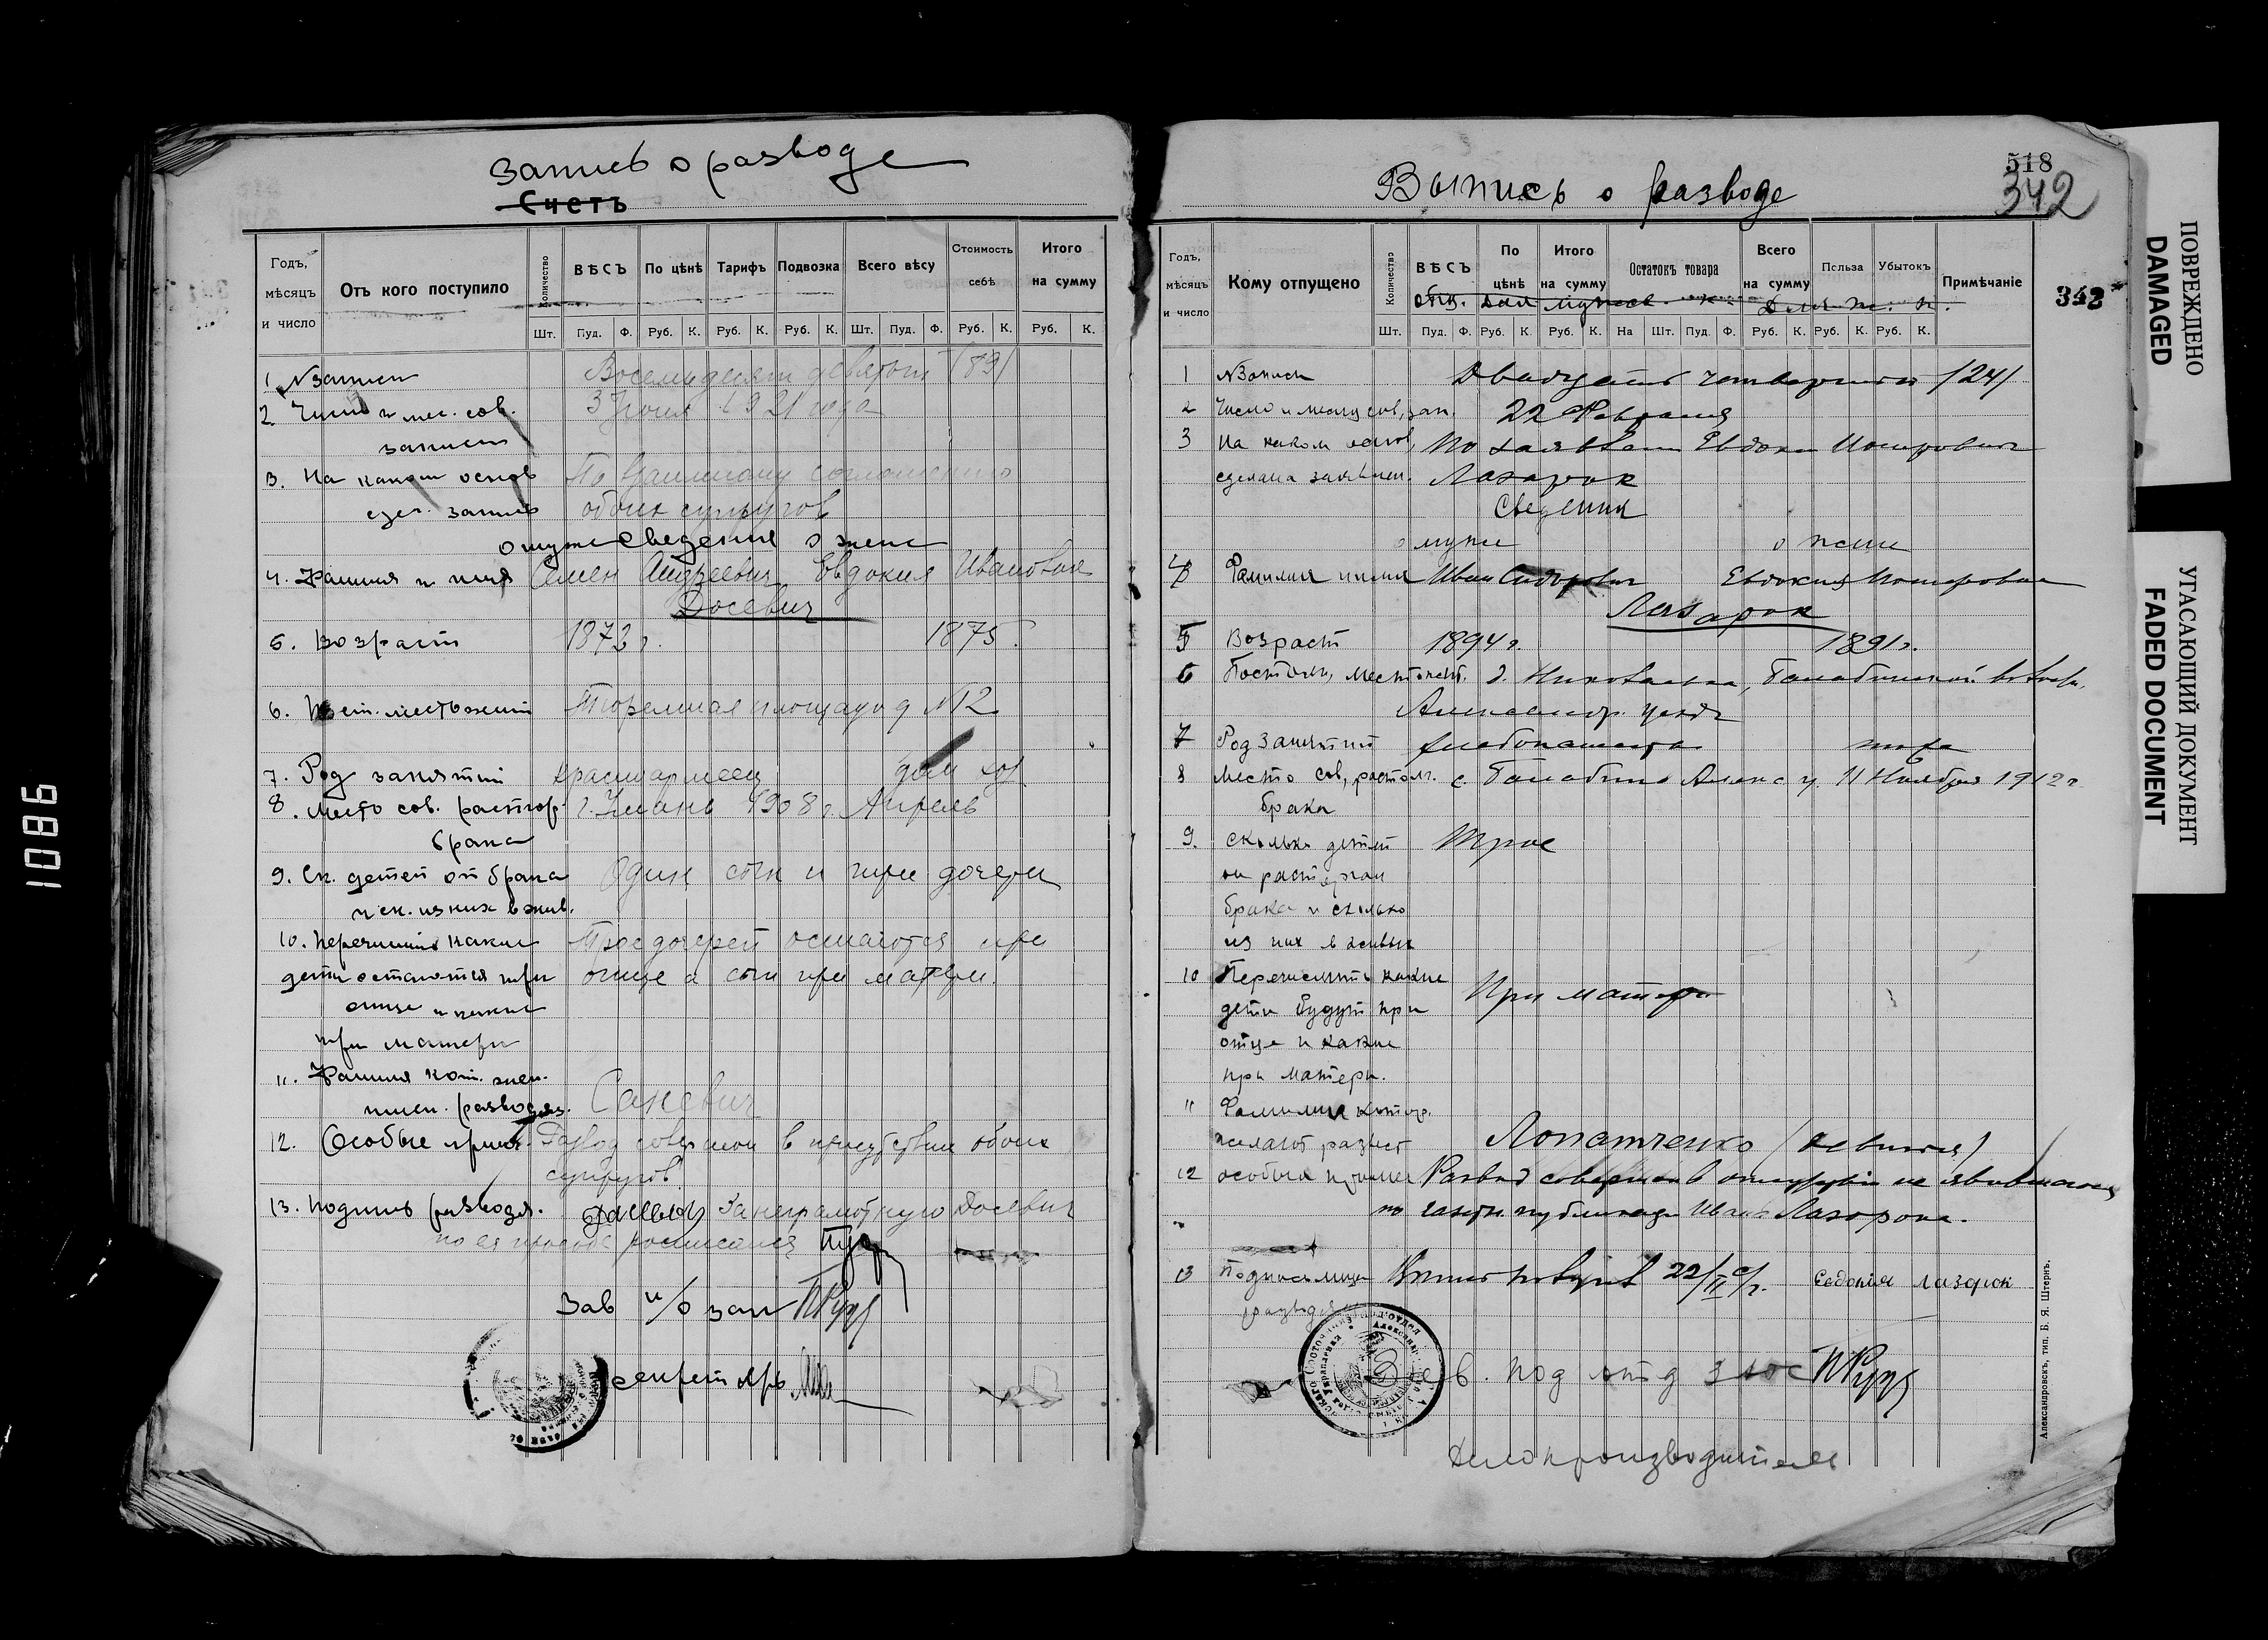 1086
Запись о разводе
Счетъ
Годъ, мѣсяцъ и число
Отъ кого поступило
Количество
ВѢСЪ
По цѣнѣ
Тарифъ
Подвозка
Всего вѣсу
Стоимость себѣ
Итого на сумму
Шт. Пуд. Ф. Руб. К. Руб. К. Руб. К. Шт. Пуд. Ф. Руб. К. Руб. К.
1. №записи Восемьдесят девятый /89/
2. Число и мес. сов. 3 Июня 1921 года
записи
3. На каком основ По взаимному соглашению
сдел. запись обоих супругов
о муже Сведения о жене
4. Фамилия и имя Семен Андреевич Евдокия Ивановна
Досевич
5. Возраст 1873 г. 1875
6. Пост. местожит Тюремная площадь д №12
7. Род занятий красноармеец дом хоз
8. Место сов. расторг. г. Умань 1908 г. Апрель
брака
9. Ск. детей от брака Один сын и три дочери
и ск. из них в жив.
10. Перечислить какие Трое дочерей остаются при
дети остаются при отце а сын при матери.
отце и какие
при матери
11. Фамилия кот. жел.
имен. разводящ.
12. Особые прим. Развод совершен в присутствии обоих
супругов
13. Подпись разводя. за неграмотную Досевич
по ея просьбе росписался
Зав п/о зап
Секретарь
518
342
Выпись о разводе
Годъ, мѣсяцъ и число
Кому отпущено
Количество
ВѢСЪ
По цѣнѣ
Итого на сумму
Остатокъ товара
Всего на сумму
Польза
Убытокъ
Примѣчаніе
342
Шт. Пуд. Ф. Руб. К. Руб. К. На Шт. Пуд. Ф. Руб. К. Руб. К. Руб. К.
1 №Записи Двадцать четвертый /24/
2 Число и месяц сов. зап. 22 Февраля
3 На каком основ. По заявлен Евдокии
сделана запись Лазарюк
Сведения
о муже о жене
4 Фамилия и имя Иван Сидорович Евдокия
Лазарюк
5 Возраст 1894 г. 1891 г.
6 Постоян, местожит. д. Николаевка, Балабинской волости,
Александр. уезда
7 Род занятий хлебопашество тоже
8 Место сов, расторг. с. Балабино Алекс у. 11 Ноября 1912 г
брака
9. Сколько детей Трое
от расторгн
брака и сколько
из них в живых
10 Перечислить какие При матери
дети будут при
отце и какие
при матери.
11 Фамилия котор.
желают развест Лопатченко
12 особыя примеч Развод совершен в отсутствии не явившагося
по газетн. публикации Ивана Лазорюка.
13 Подпись лица 22/II с/г. Евдокія Лазарюк
разводящ
Зав. под отд З
Делопроизводитель
Александровскъ, тип. Б. Я. Штернъ.
ПОВРЕЖДЕНО
DAMAGED
УГАСАЮЩИЙ ДОКУМЕНТ
FADED DOCUMENT